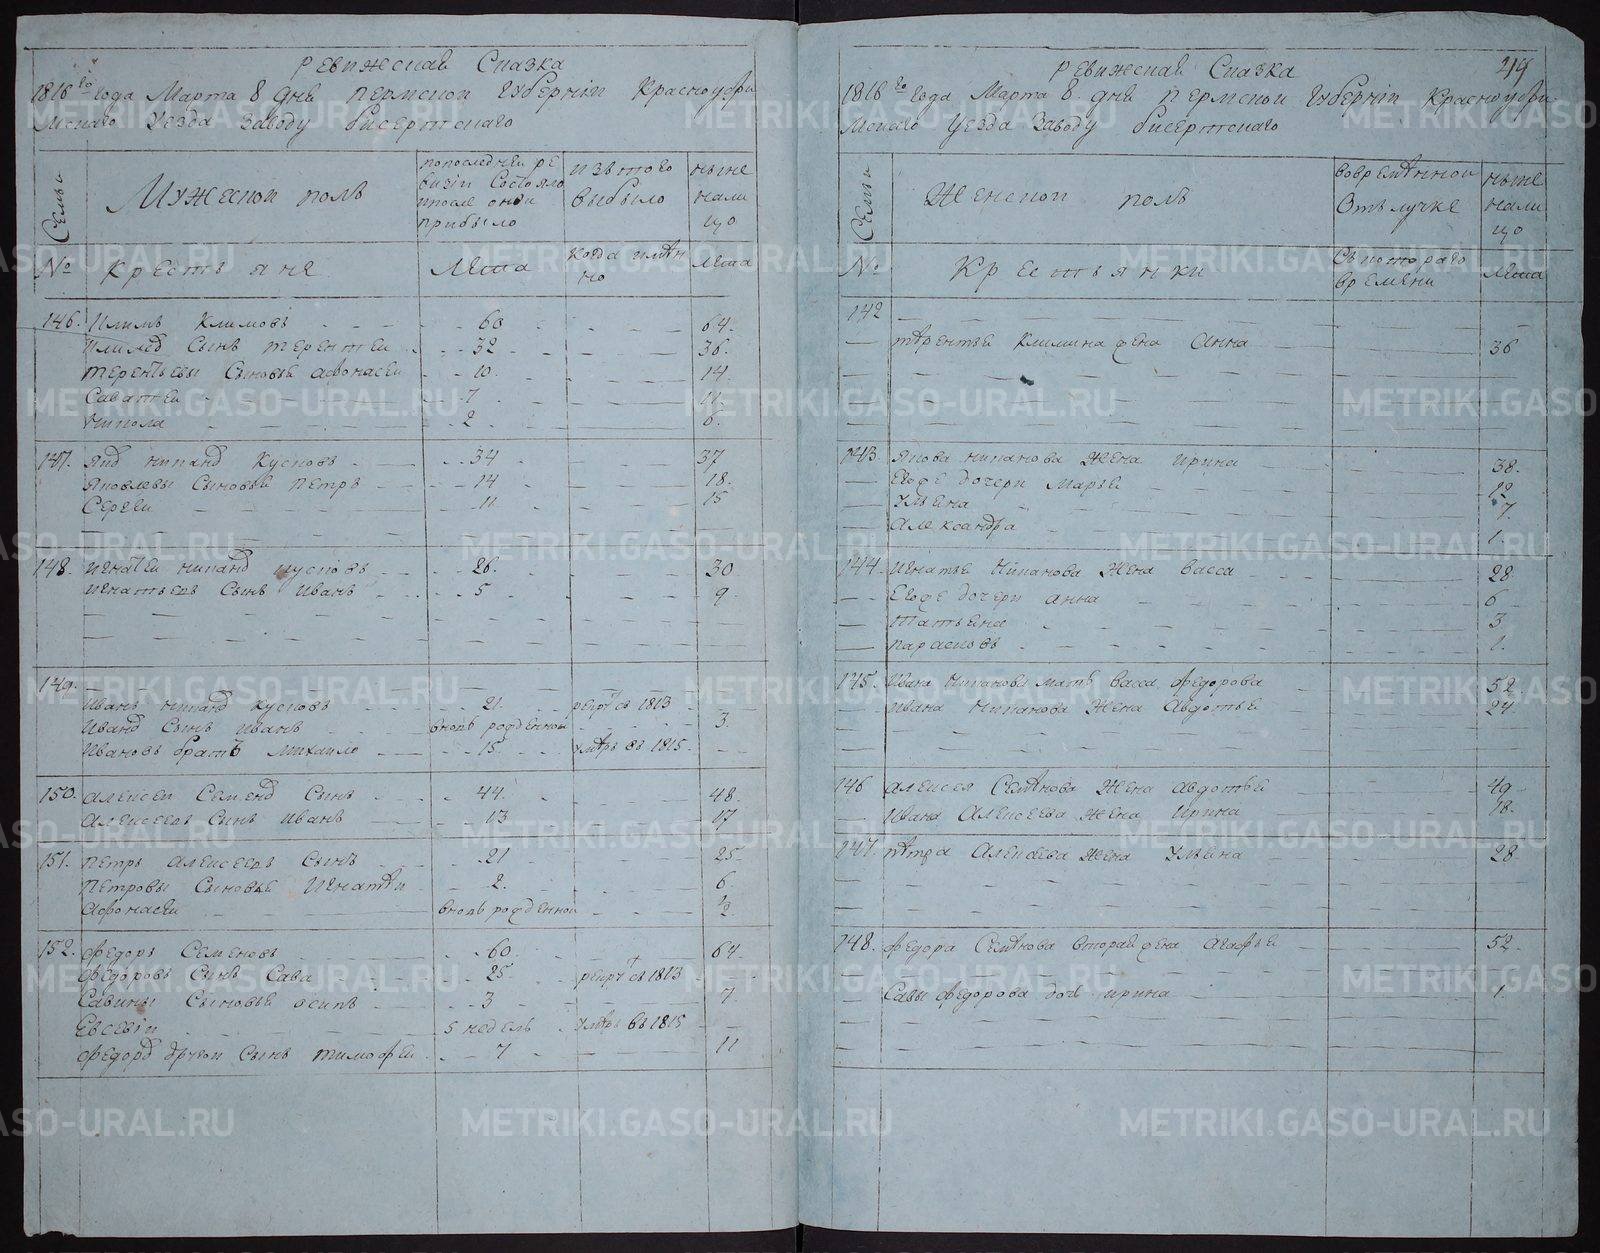 Ревижская Сказка
1816 го года Марта 8 дня Пермской Губернiи Красноуфи
мскаго Уезда Заводу Бисертскаго
Семьи
Мужескои полъ
попоследнеи ре
визiи состояло
ипосле онои
прибыло
изътого
выбыло
ныне
нали
цо
№
крестьяне
Лета
когда имянно
Лета
146. Климъ Климовъ 60 64.
Климов Сынъ терентеи 32 36.
терентьевы Сыновье афонасеи 10 14
Саватеи 7 11.
Никола 2 6.
147. Яков никанов Кусковъ 34 37
Яковлевы Сыновье Петръ 14 18.
Сергеи 11 15
148. игнатеи никанов кусковъ 26. 30
игнатьевъ Сынъ Иванъ 5 9
149.
Иванъ никанов Кусковъ 21. рекрут въ 1813
Иванов Сынъ иванъ вновь рожденнои 3.
Ивановъ братъ михаило 15. умеръ въ 1815
150. алексеи Семенов Сынъ 44. 48.
Алексеевъ Сынъ Иванъ 13 17
151. петръ алексеевъ Сынъ 21 25
Петровы Сыновье Игнатеи 2. 6
Афонасеи вновь рожденнои ½
152. Федоръ Семеновъ 60. 64.
Федоровъ Сынъ Сава 25 рекрут въ 1813
Савины Сыновье осипъ 3 7
Евсевiи 5 недель умеръ въ 1815
Федоров другои Сынъ тимофеи 7 11
49
Ревижская Сказка
1816 го года Марта 8 дня Пермскои Губернiи Красноуфи
мскаго Уезда Заводу бисертскаго
Семьи
Женскои полъ
вовременнои
Отълучке
ныне
нали
цо
№
Крестьянки
Съкотораго
времени
Лета
142
терентье Климина жена Анна 36
143. Якова никанова жена ирина 38.
Егоже дочери Марье 12
Ульяна 7
Александра 1.
144. Игнатье Никанова жена васса 28
Егоже дочери анна 6
татьяна 3
парасковъ 1.
145. Ивана Никанови мать васа федорова 52
Ивана Никанова жена Авдотье 24.
146 алексея Семянова жена авдотье 49
Ивана Алексеева жена Ирина 18.
147. петра Алексеева жена Ульяна 28
148. федора Семянова вторая жена агафье 52
Савы федорова дочь ирина 1.
METRIKI.GASO-URAL.RU